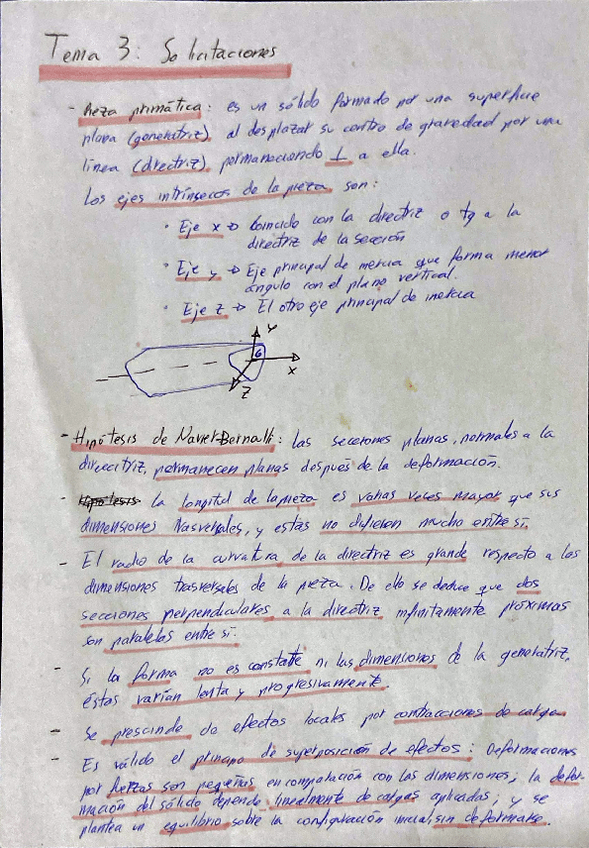 Tema 3: Solicitaciones
- Pieza primática: es un sólido formado por una superficie
plana (generatriz) al desplazar su centro de gravedad por una
línea (directriz) permaneciendo ⊥ a ella.
Los ejes intrínsecos de la pieza son:
· Eje x → Coincide con la directriz o tg a la
directriz de la sección
· Eje y → Eje principal de inercia que forma menor
ángulo con el plano vertical.
· Eje z → El otro eje principal de inercia
Y
G
X
Z
- Hipótesis de Navier-Bernalli: las secciones planas, normales a la
direcctriz, permanecen planas después de la deformación.
- Hipótesis la longitud de la pieza es varias veces mayor que sus
dimensiones trasversales, y estas no difieren mucho entre sí.
- El radio de la curvatura de la directriz es grande respecto a las
dimensiones trasversales de la pieza. De ello se deduce que dos
secciones perpendiculares a la directriz infinitamente próximas
son paralelas entre sí.
- Si la forma no es constatte ni las dimensiones de la generatriz,
éstas varían lenta y progresivamente.
- Se prescinde de efectos locales por contracciones de cargas
- Es válido el principo de superposición de efectos: Deformaciones
por fuerzas son pequeñas en comparación con las dimensiones; la defor-
mación del sólido depende linealmente de cargas aplicadas; y se
plantea un equilibrio sobre la configuración inicial sin deformarse.